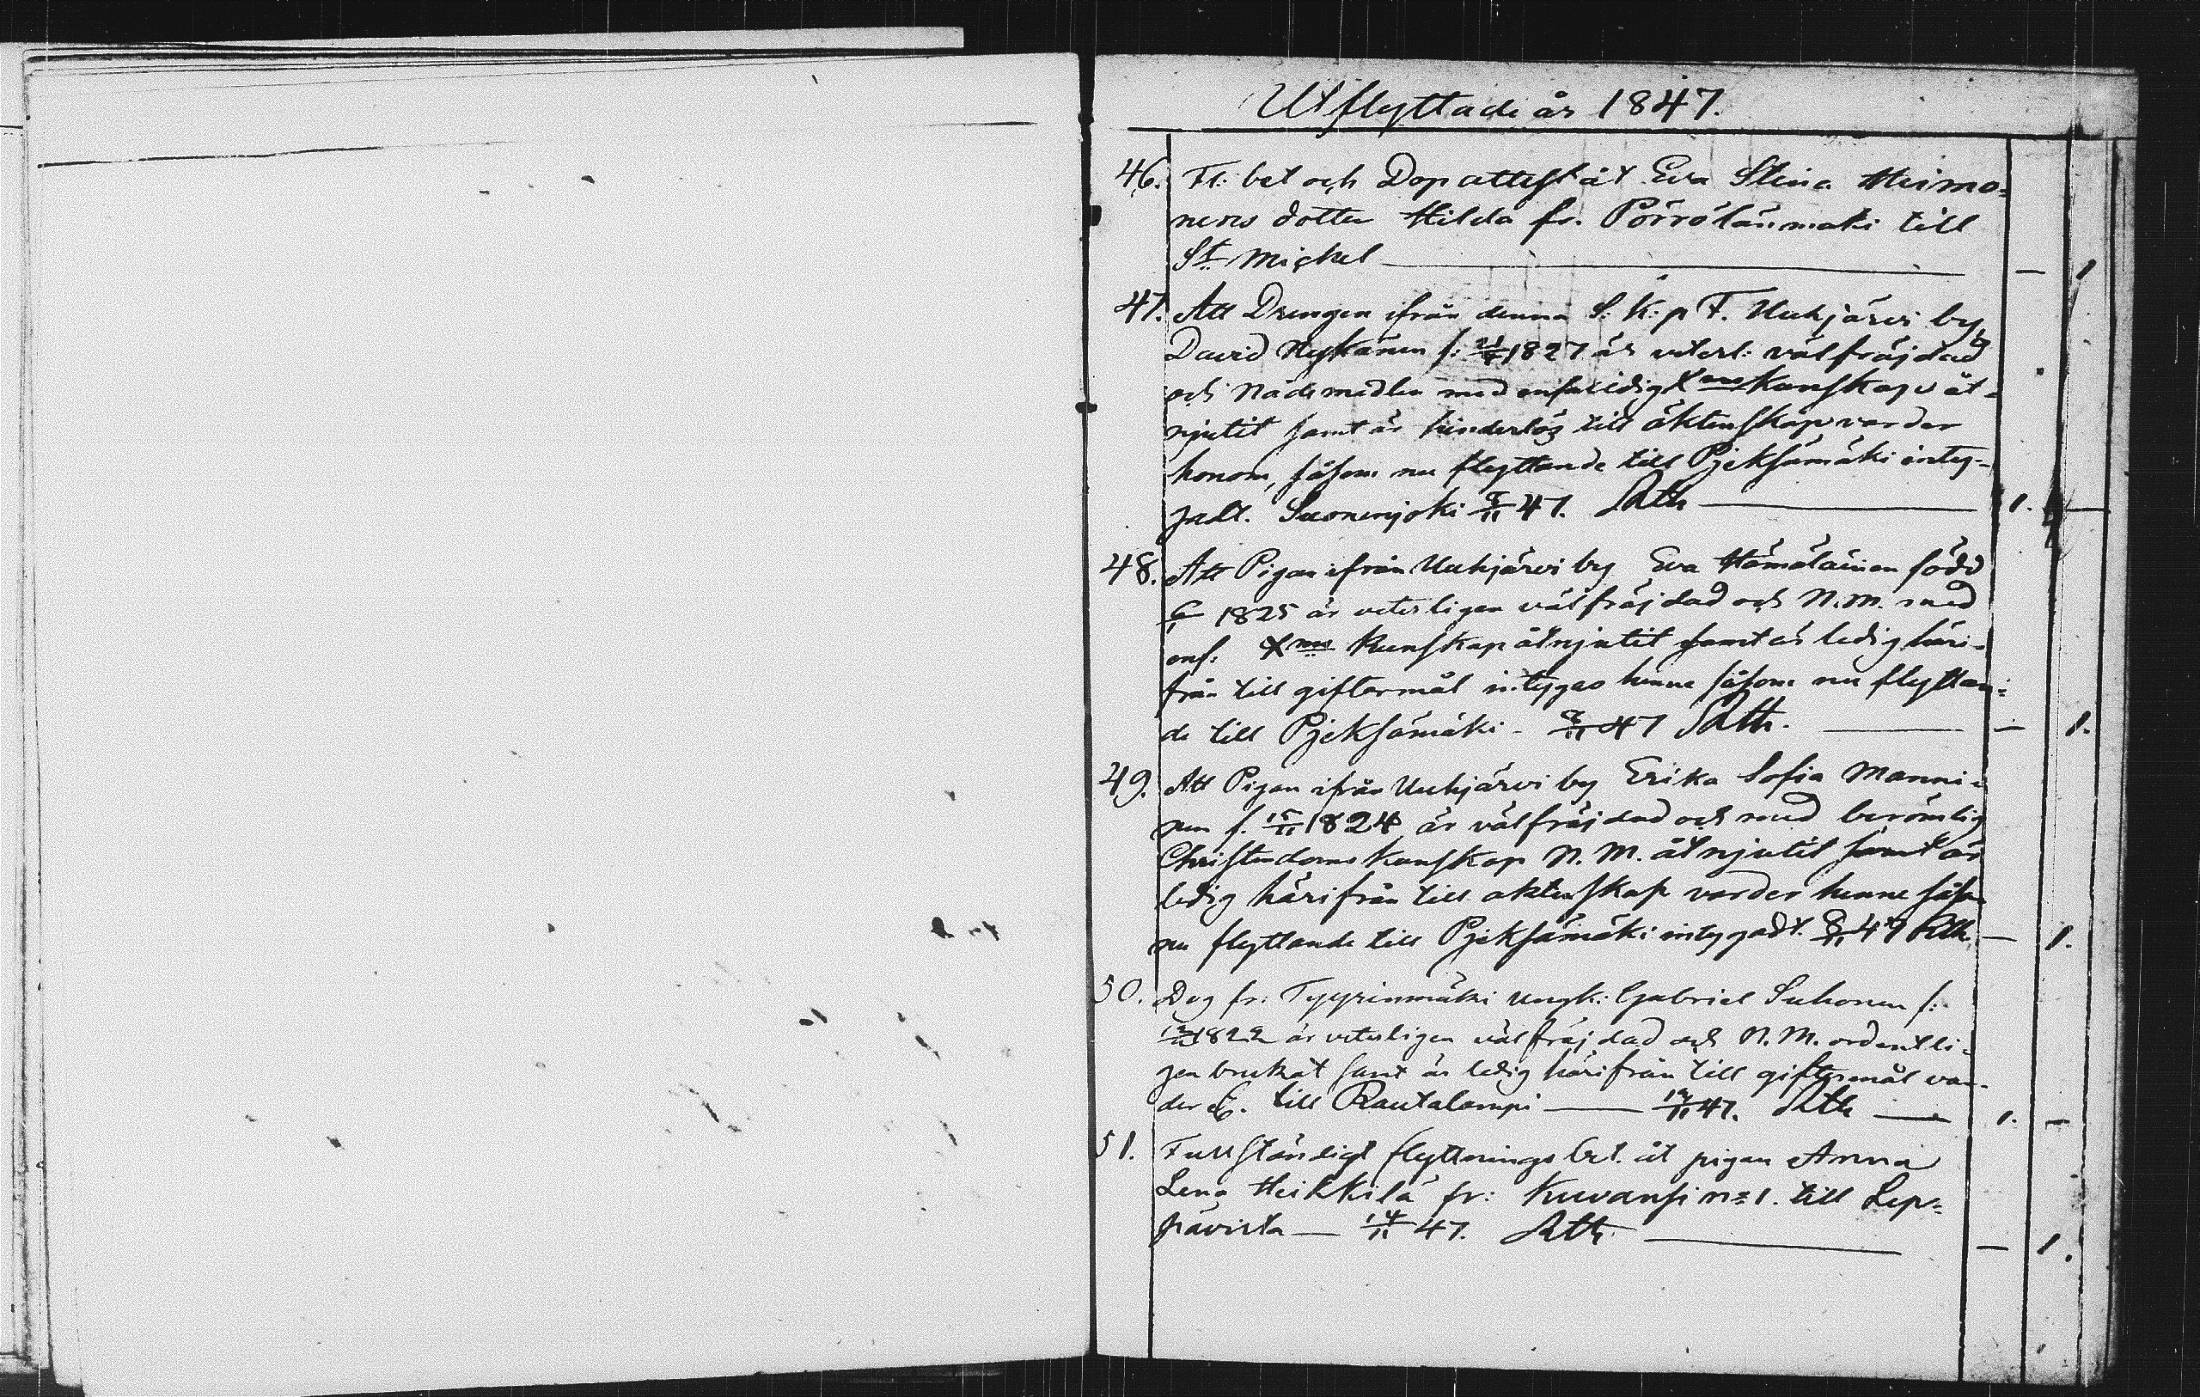 Utflyttade år 1847.
46. Fl: bet och Dopattest åt Eva Stina Heimo=
nens dotter Hilda fr. Pörrölänmäki till
St Michel — — 1
47. Att Drengen ifrån denna S: K: p F. Uuhjärvi by
David Nykänen f: 21/5 1827 är veterl: välfräjdad
och Nådemedlen med enfaldig Xms Kunskap åt=
njutit samt är hinderlös till äktenskap varder
honom, såsom nu flyttande till Pjeksämäki inty=
gadt. Suonenjoki 8/11 47. — 1. —
48. Att Pigan ifrån Uuhjärvi by Eva Hämäläinen född
6/1 1825 är veterligen välfräjdad och N.M. med
enf: Xms Kunskap åtnjutit samt är ledig häri=
från till giftermål intygas henne såsom nu flyttan=
de till Pjeksämäki - 8/11 47 — — 1.
49. Att Pigan ifrån Uuhjärvi by Erika Sofia Manni=
nen f. 15/11 1824 är välfräjdad och med berömlig
Christendoms Kunskap N. M. åtnjutit samt är
ledig härifrån till äktenskap varder henne såsom
nu flyttande till Pjeksämäki intygadt. 8/11 47 — 1.
50. Dog fr: Tyyrinmäki Ungk: Gabriel Suhonen f:
1822 är veterligen välfräjdad och N. M. ordentli=
gen brukat samt är ledig härifrån till giftermål var=
der till Rautalampi — 12/11 47. — 1. —
51. Fullständigt flyttningsbet. åt pigan Anna
Lena Heikkilä fr: Kuvansi n=1. till Lep=
pävirta — 14/11 47. — — 1.